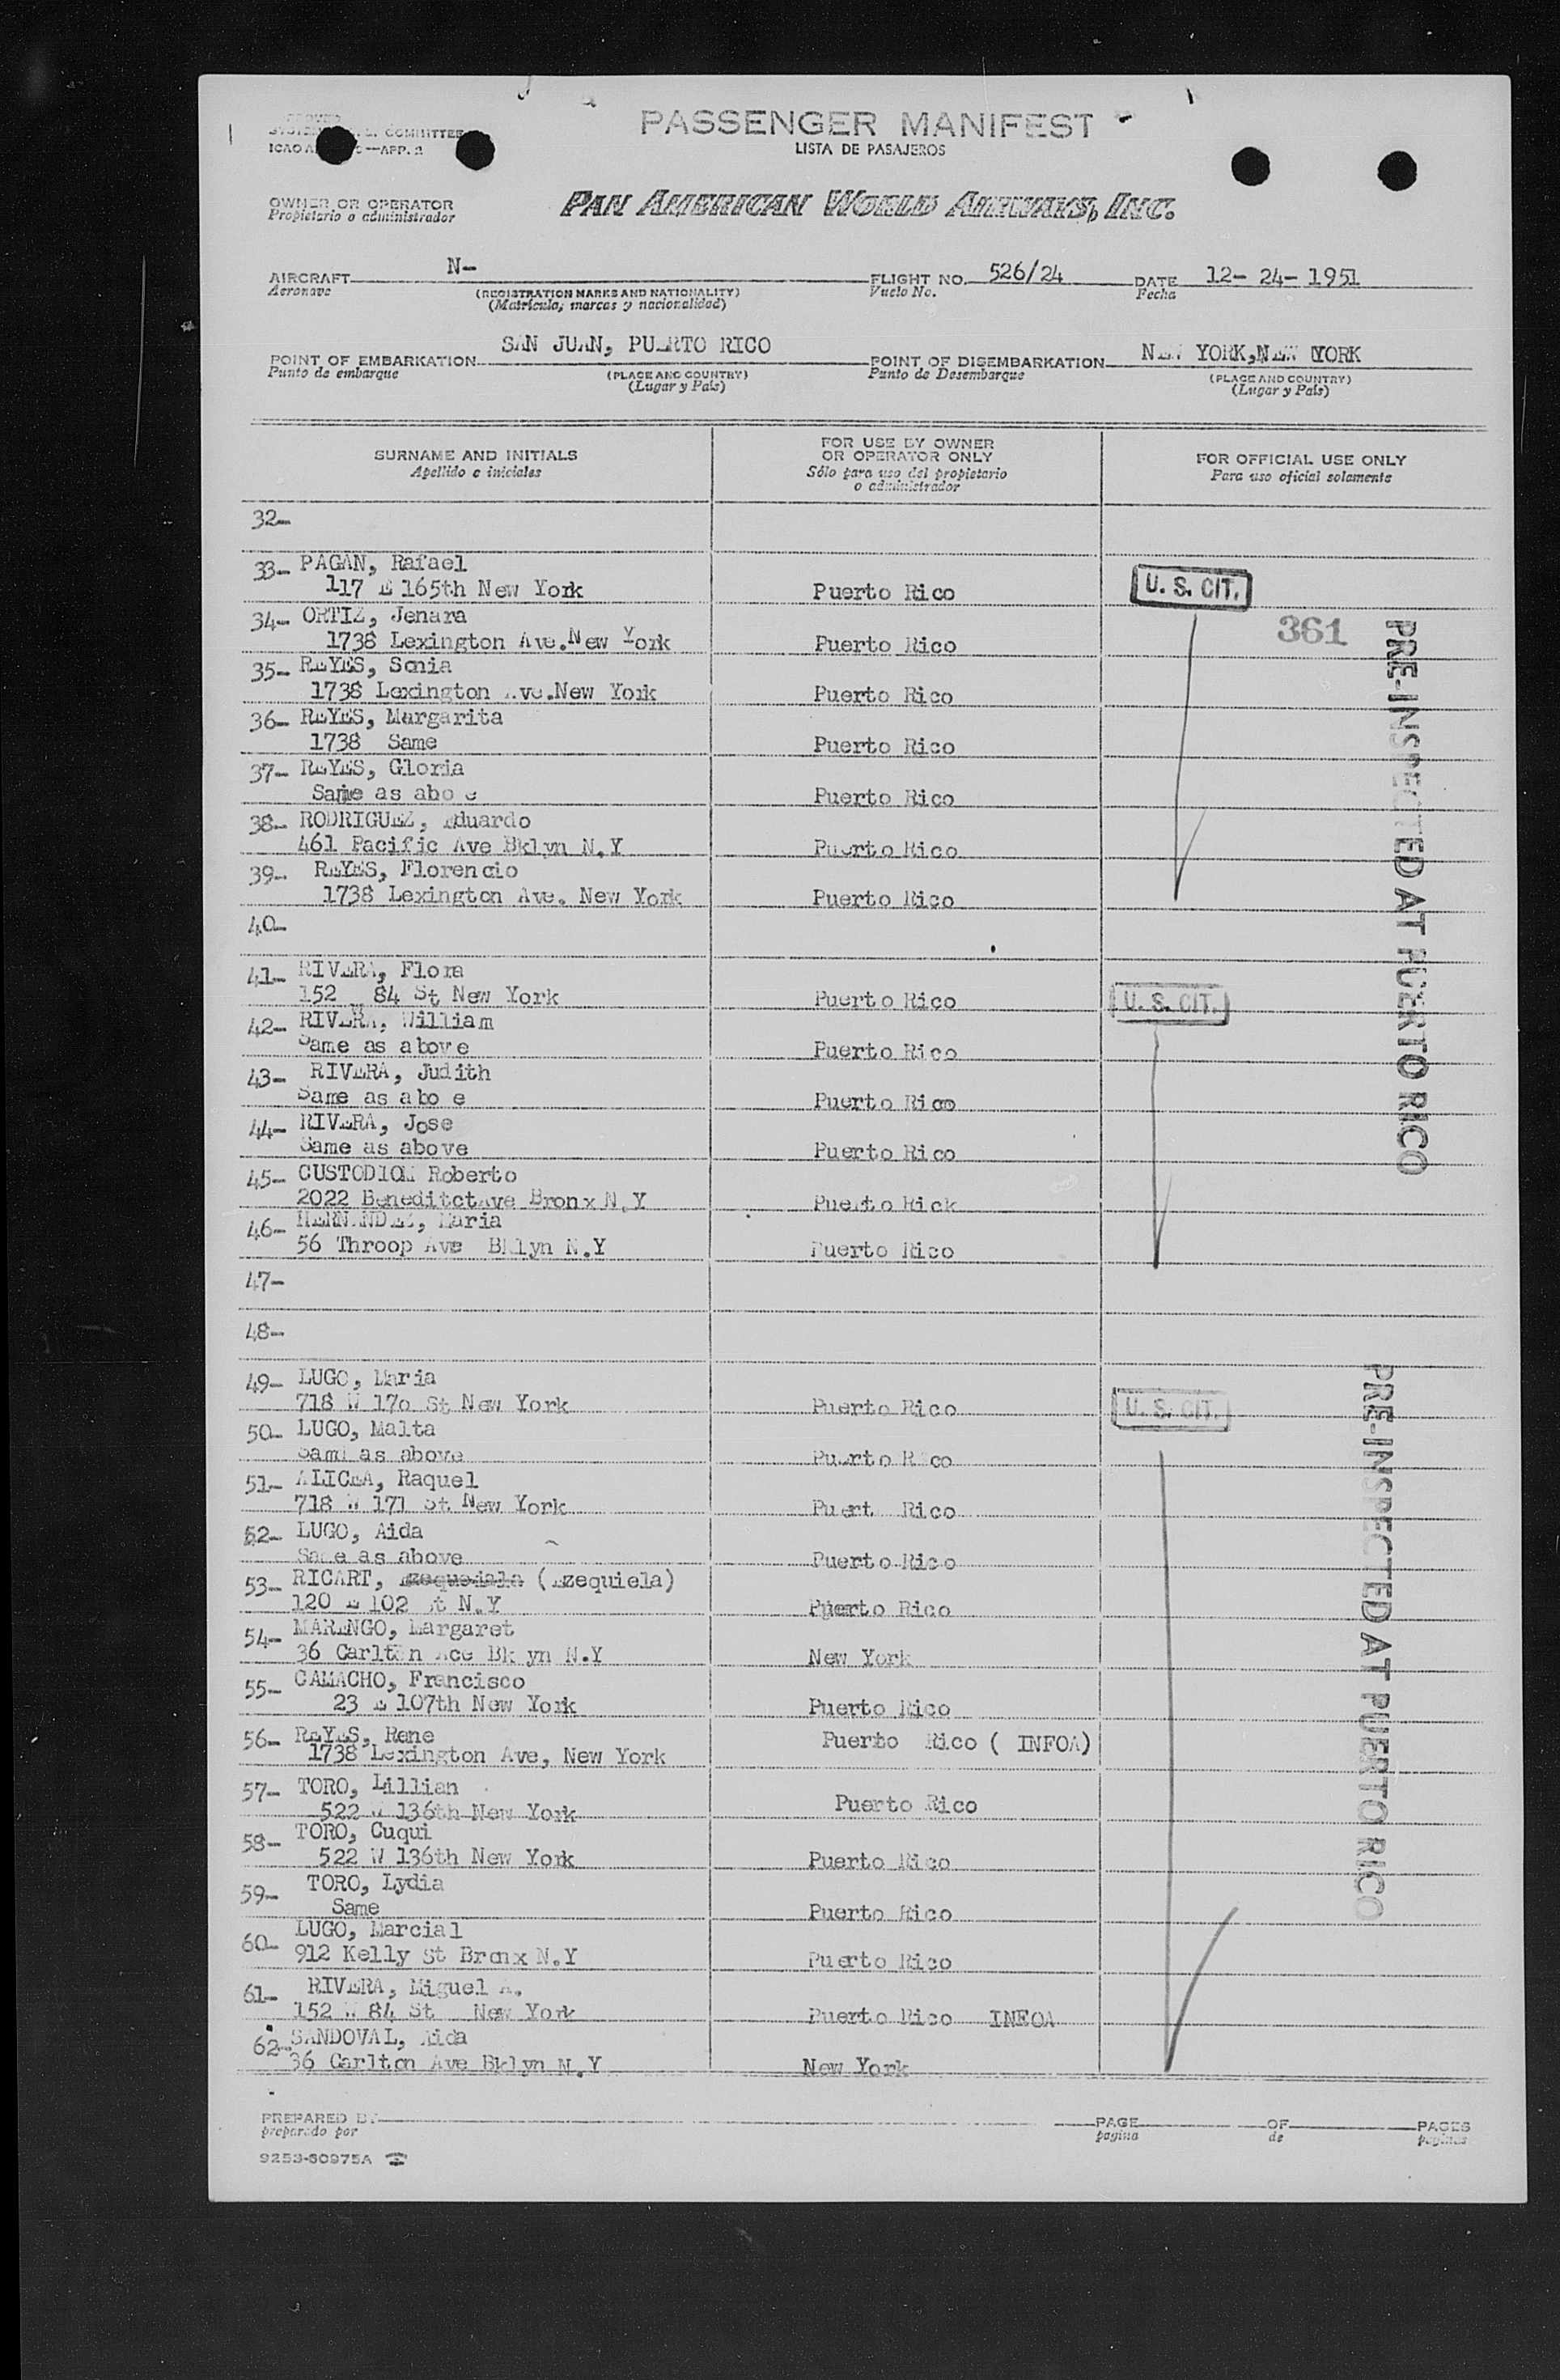 COMMITTEE
ICAO A —APP. 2
PASSENGER MANIFEST
LISTA DE PASAJEROS
OWNER OR OPERATOR
Propietario o administrador
PAN AMERICAN WORLD AIRWAYS, INC.
AIRCRAFT N-
Aeronave
(REGISTRATION MARKS AND NATIONALITY)
(Matrícula, marcas y nacionalidad)
FLIGHT NO. 526/24
Vuelo No.
DATE 12- 24- 1951
Fecha
POINT OF EMBARKATION SAN JUAN, PUERTO RICO
Punto de embarque
(PLACE AND COUNTRY)
(Lugar y País)
POINT OF DISEMBARKATION NEW YORK,NEW YORK
Punto de Desembarque
(PLACE AND COUNTRY)
(Lugar y País)
SURNAME AND INITIALS
Apellido e iniciales
FOR USE BY OWNER
OR OPERATOR ONLY
Sólo para uso del propietario
o administrador
FOR OFFICIAL USE ONLY
Para uso oficial solamente
32-
33- PAGAN, Rafael
117 E 165th New York Puerto Rico U. S. CIT.
34- ORTIZ, Jenara 361
1738 Lexington Ave.New York Puerto Rico
35- REYES, Sonia
1738 Lexington Ave.New York Puerto Rico
36- REYES, Margarita
1738 Same Puerto Rico
37- REYES, Gloria
Same as abo e Puerto Rico
38- RODRIGUEZ, Eduardo
461 Pacific Ave Bklyn N.Y Puerto Rico
39- REYES, Florencio
1738 Lexington Ave. New York Puerto Rico
PRE-INSPECTED AT PUERTO RICO
40-
41- RIVERA, Flora
152 W 84 St New York Puerto Rico U. S. CIT.
42- RIVERA, William
Same as above Puerto Rico
43- RIVERA, Judith
Same as abo e Puerto Rico
44- RIVERA, Jose
Same as above Puerto Rico
45- Roberto
2022 Ave Bronx N.Y Puerto Rick
46- HERNANDEZ, Maria
56 Throop Ave Bklyn N.Y Puerto Rico
47-
48-
49- LUGO, Maria
718 W 170 St New York Puerto Rico U. S. CIT.
50- LUGO, Malta
Same as above Puerto Rico
51- ALICEA, Raquel
718 W 171 St New York Puert Rico
52- LUGO, Aida
Same as above Puerto Rico
53- RICART, (Ezequiela)
120 E 102 St N.Y Puerto Rico
54- MARENGO, Margaret
36 Carlton Ace Bk yn N.Y New York
55- CAMACHO, Francisco
23 E 107th New York Puerto Rico
56- REYES, Rene Puerto Rico ( INFOA)
1738 Lexington Ave, New York
57- TORO, Lillian
522 W 136th New York Puerto Rico
58- TORO, Cuqui
522 W 136th New York Puerto Rico
59- TORO, Lydia
Same Puerto Rico
60- LUGO, Marcial
912 Kelly St Bronx N.Y Puerto Rico
61- RIVERA, Miguel A.
152 W 84 St New York Puerto Rico INFOA
62- SANDOVAL, Aida
36 Carlton Ave Bklyn N.Y New York
PRE-INSPECTED AT PUERTO RICO
PREPARED BY
preparado por
PAGE OF PAGES
pagina de paginas
9253-60975A